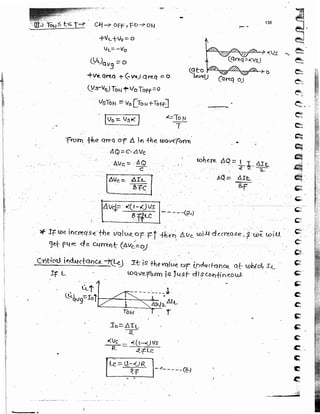 138
II) TON ≤ t ≤ T → CH → OFF, FD → ON
+VL + Vo = 0
VL = -Vo
(VL)avg = 0
+Ve area + (-Ve) area = 0
(Vs-Vo) TON + Vo TOFF = 0
VsTON = Vo [TON + TOFF]
Vo = Vs∝
∝ = TON / T
(area = ∝Vs)
∝Vs
0
(area 0)
From the area of Δ in the waveform
ΔQ = C·ΔVc
ΔVc = ΔQ / C
where ΔQ = 1/2 · T/2 · ΔIL/2
ΔVc = ΔIL / 8fC
ΔQ = ΔIL / 8f
ΔVc = ∝(1-∝)Vs / 8f²LC ------(2)
* If we increase the value of f↑ then ΔVc will decrease, & we will
get pure dc current (ΔVc = 0)
Critical inductance →(Lc) It is the value of inductance at which IL
waveform is just discontinuous
If L
iL↑
(IL)avg = Io
ΔIL/2
ΔIL
TON T
Io = ΔIL / 2
∝Vs / R = ∝(1-∝)Vs / 2fLc
Lc = (1-∝)R / 2f ------(3)